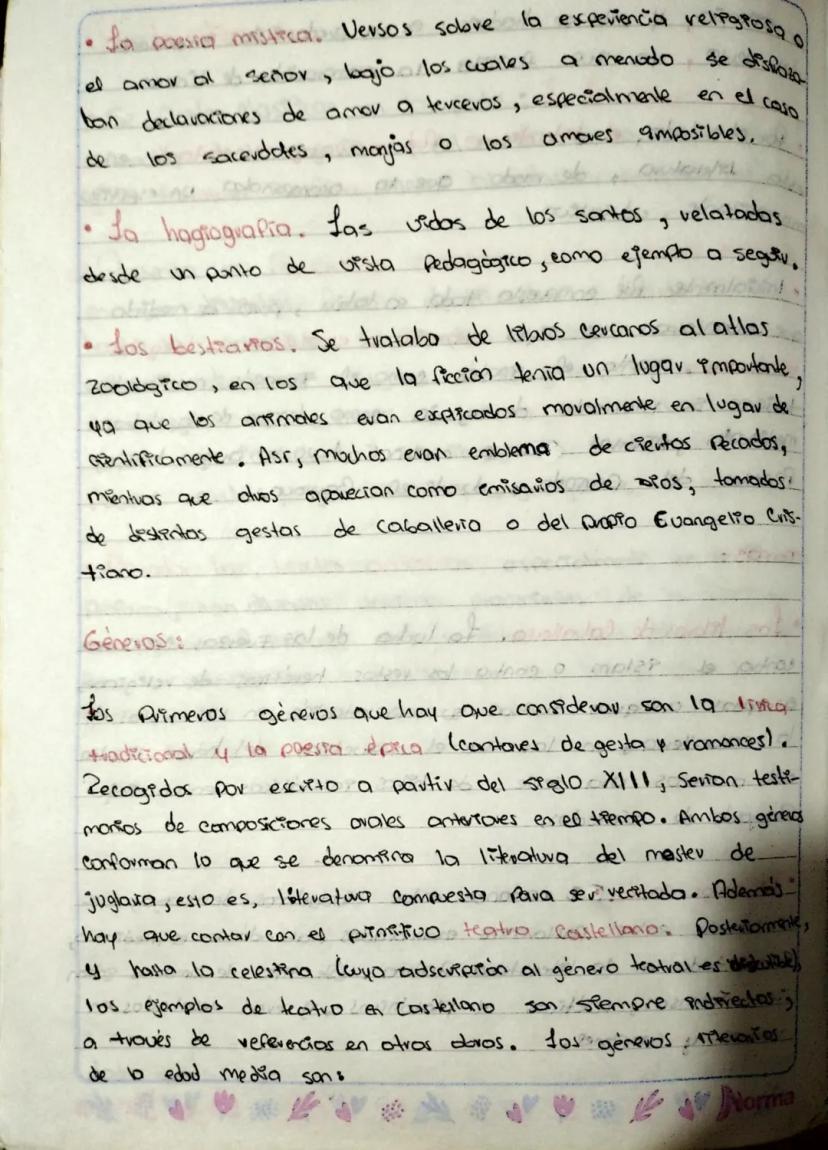 • La poesía mística. Versos sobre la experiencia religiosa o
el amor al señor, bajo los cuales a menudo se disfraza-
ban declaraciones de amor a terceros, especialmente en el caso
de los sacerdotes, monjas o los amores imposibles.
• La hagiografía. Las vidas de los santos, relatadas
desde un punto de vista pedagógico, como ejemplo a seguir.
• Los bestiarios. Se trataba de libros cercanos al atlas
zoológico, en los que la ficción tenía un lugar importante,
ya que los animales eran explicados moralmente en lugar de
científicamente. Así, muchos eran emblema de ciertos pecados,
mientras que otros aparecían como emisarios de Dios, tomados
de distintas gestas de caballería o del propio Evangelio Cris-
tiano.
Géneros:
Los primeros géneros que hay que considerar son la lírica
tradicional y la poesía épica (cantares de gesta y romances).
Recogidos por escrito a partir del siglo XIII, serían testi-
monios de composiciones orales anteriores en el tiempo. Ambos géneros
conforman lo que se denomina la literatura del mester de
juglaría, esto es, literatura compuesta para ser recitada. Además
hay que contar con el primitivo teatro castellano. Posteriormente,
y hasta la celestina (cuya adscripción al género teatral es discutible)
los ejemplos de teatro en castellano son siempre indirectos,
a través de referencias en otras obras. Los géneros
de la edad media son:
Norma